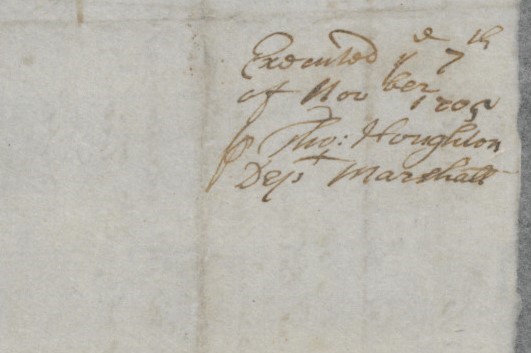 Executed yᵉ 7ᵗʰ
of Novber 1705
⅌ Tho: Houghton
Depᵗ Marshall